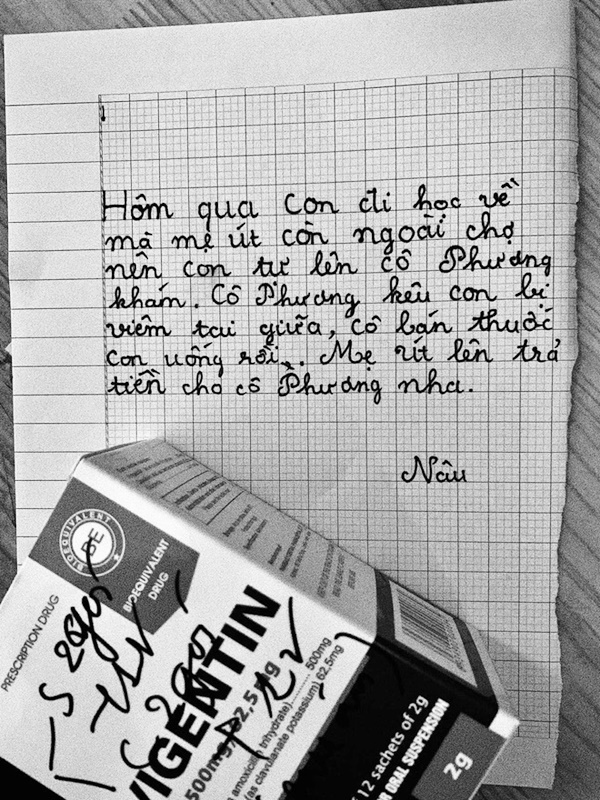 Hôm qua con đi học về
mà mẹ út còn ngoài chợ
nên con tự lên cô Phương
khám. Cô Phương kêu con bị
viêm tai giữa, cô bán thuốc
con uống rồi... Mẹ út lên trả
tiền cho cô Phương nha.
Nâu
BIOEQUIVALENT
BE
BIOEQUIVALENT
DRUG
PRESCRIPTION DRUG
VIGENTIN
500mg/62,5mg
amoxicilin trihydrate) 500mg
(as clavulanate potassium) 62.5mg
12 sachets of 2g
FOR ORAL SUSPENSION
2g